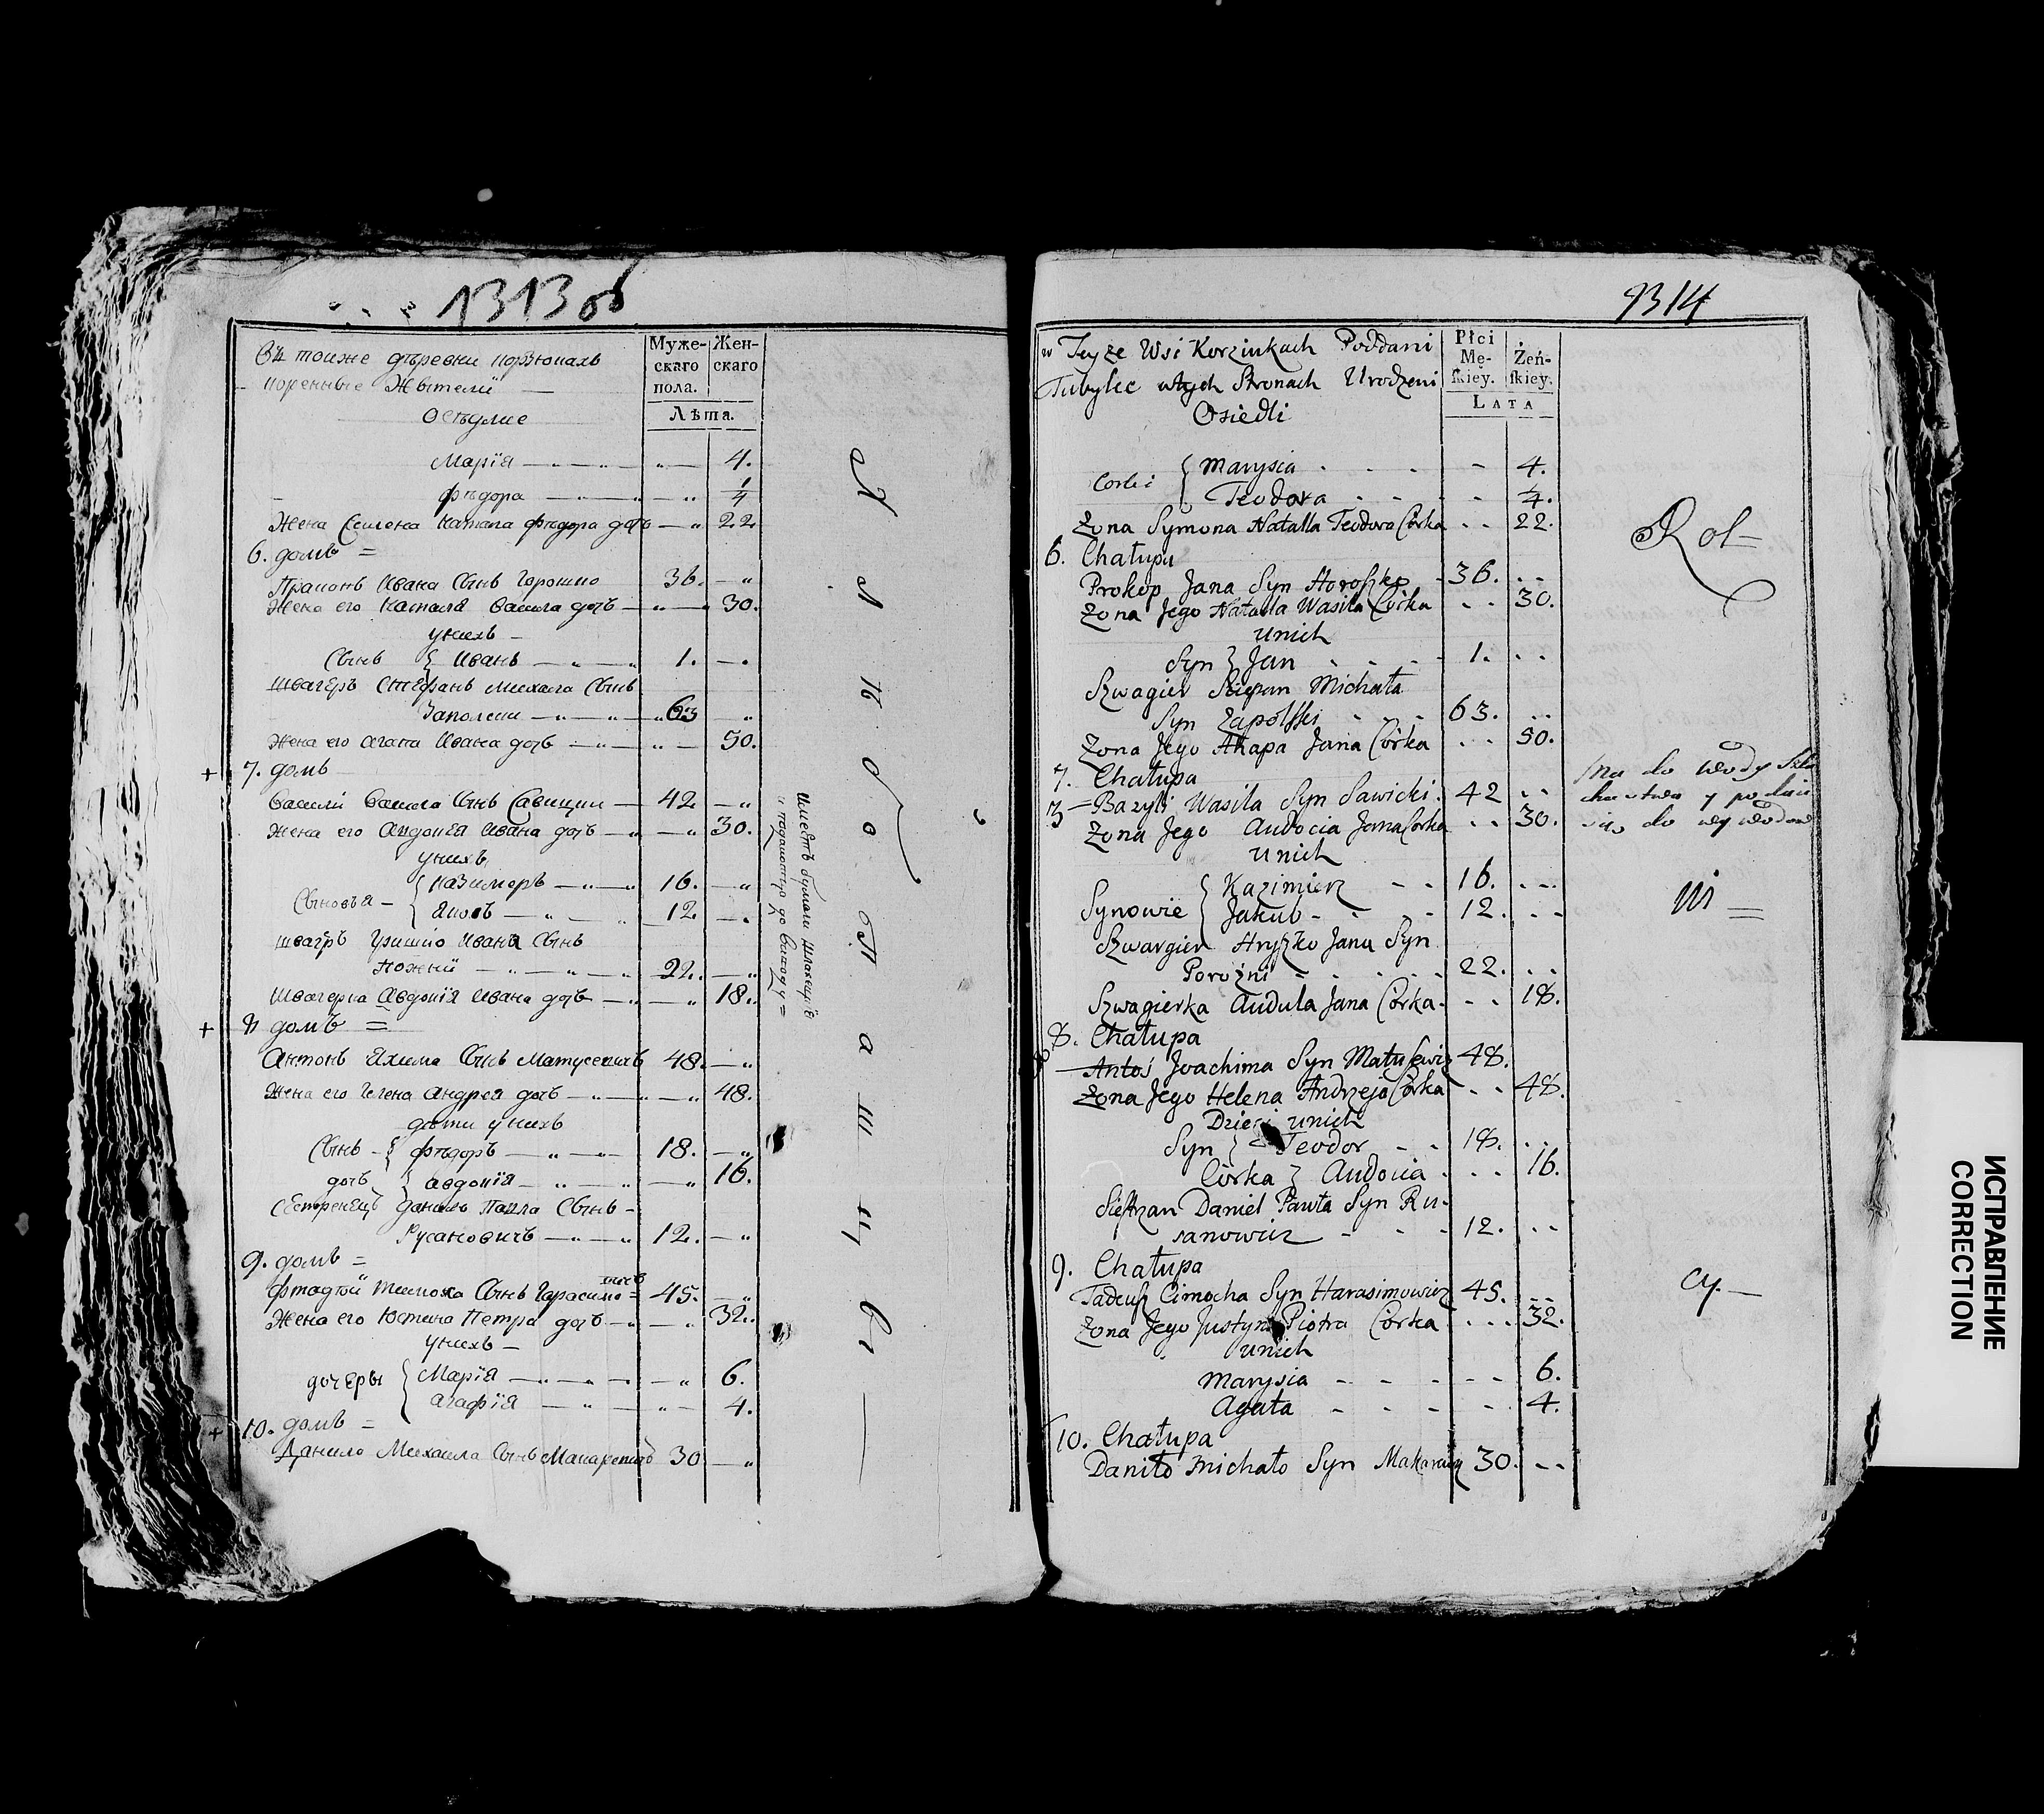 1313 об
въ тоиже деревни
коренные Жытели
Оседлие
Муже-
скаго
пола.
Жен-
скаго
Лѣта.
Марїя 4.
Федора 1/4
Жена Семена Натала Федора дочь 22.
6. домъ =
Иванa Сынъ 36.
Жена его Наталя Васила дочь 30.
у нихъ
Сынъ { Иванъ 1.
швагеръ Стефанъ Михала Сынъ
63
Жена его Агапа Ивана дочь 50.
+ 7. домъ
Василї Васила Сынъ Савицки 42
Жена его Авдокїя Ивана дочь 30.
у нихъ
Сыновья { Казимеръ 16.
Якобъ 12.
швагръ Гришко Ивана Сынъ
22.
Швагерка Авдокїя Ивана дочь 18.
+ 8 домъ =
Антонъ Яхима Сынъ Матусевичъ 48.
Жена его Гелена Андрея дочь 48.
дети у нихъ
Сынъ { Федоръ 18.
дочь } Авдокїя 16.
Сестренецъ Данило Павла Сынъ
Русановичъ 12.
9. домъ =
Тимоха Сынъ Герасимо=
вичъ 45.
Жена его Юстина Петра дочь 32.
у нихъ
дочеры { Марїя 6.
Агафїя 4.
+ 10. домъ =
Данило Михаила Сынъ Макаревичъ 30
Х
л
ѣ
б
о
п
а
ш
ц
ы
1314
w Teyże Wsi Korzinkach Poddani
Tubylec w tych Stronach Urodzeni
Osiedli
Płci
Mę-
skiey.
Żeń-
skiey.
LATA
Corki { Marysia 4.
Teodora 1/4.
Żona Symona Natalla Teodora Córka 22.
6. Chałupa
Prokop Jana Syn Horoszko 36.
Żona Jego Natalla Wasila Córka 30.
u nich
Syn } Jan 1.
Szwagier Stepan Michała
Syn Zapolski 63.
Żona Jego Ahapa Jana Córka 50.
7. Chałupa
3 Bazyli Wasila Syn Sawicki 42
Żona Jego Audocia Jana Corka 30.
u nich
Synowie { Kazimierz 16.
Jakub 12.
Szwargier Hryszko Jana Syn
Porożni 22.
Szwagierka Audula Jana Córka 18.
8. Chałupa
Antoś Joachima Syn Matusewicz 48.
Żona Jego Helena Andrzeja Córka 48.
Dzieci u nich
Syn } Teodor 18.
Córka } Audocia 16.
Siestrzan Daniel Pawła Syn Ru-
sanowicz 12.
9. Chałupa
Tadeusz Cimocha Syn Harasimowicz 45.
Żona Jego Justyna Piotra Córka 32.
u nich
Marysia 6.
Agata 4.
10. Chałupa
Daniło Michało Syn Makarewicz 30.
Rol=
ni=
cy.
Ma do
do wywodow
ИСПРАВЛЕНИЕ
CORRECTION